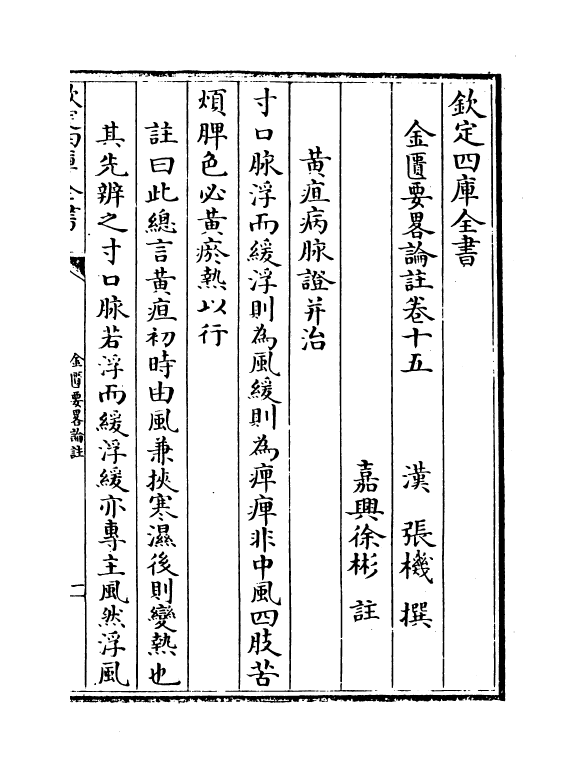 欽定四庫全書
金匱要畧論註卷十五　漢　張機　撰
嘉興徐彬　註
黄疸病脉證并治
寸口脉浮而緩浮則為風緩則為痺痺非中風四肢苦
煩脾色必黄瘀熱以行
註曰此總言黄疸初時由風兼挾寒濕後則變熱也
其先辨之寸口脉若浮而緩浮緩亦專主風然浮風
欽定四庫全書
金匱要畧論註
一